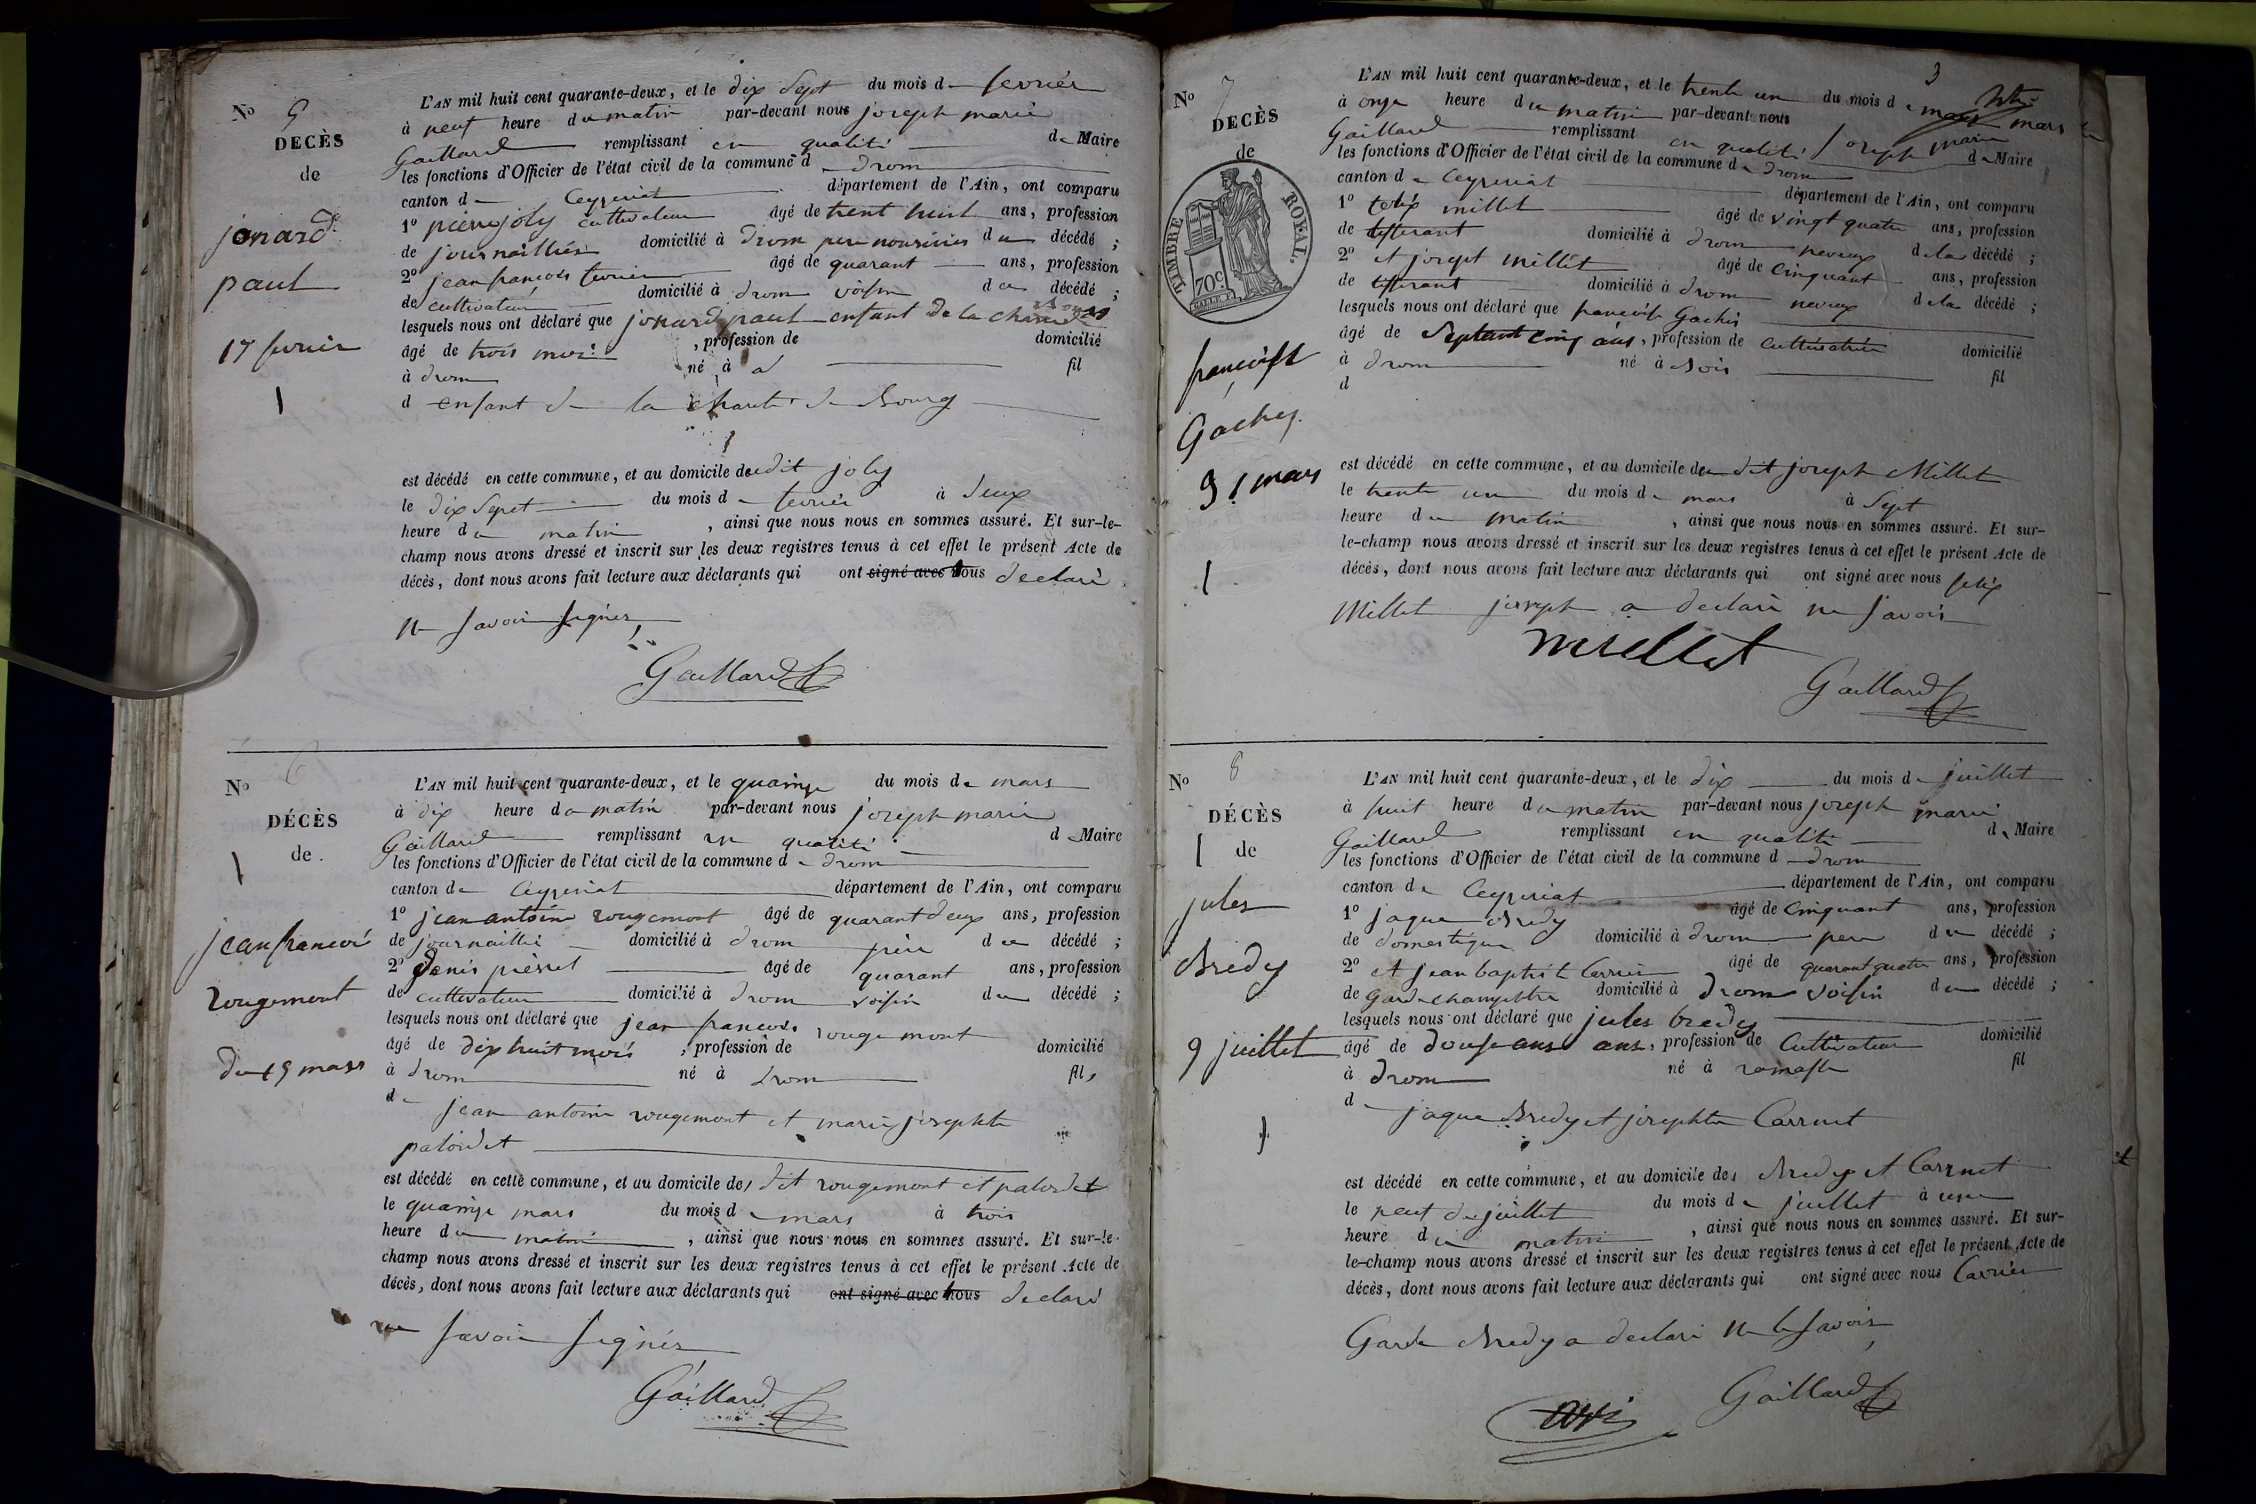 No 5
DECÈS
de
jonard
paul
17 fevrier
L'AN mil huit cent quarante-deux, et le dix Sept du mois de fevrier
à neuf heure du matin par-devant nous joseph marie
Gaillard remplissant en qualité de Maire
les fonctions d'Officier de l'état civil de la commune d drom
canton de Ceyzeriat département de l'Ain, ont comparu
1º pierre joly cultivateur âgé de trent huit ans, profession
de journaillier domicilié à drom pere nouricier du décédé ;
2º jean francois fevrier âgé de quarant ans, profession
de cultivateur domicilié à drom voisin du décédé ;
lesquels nous ont déclaré que jonard paul enfant de la charité
âgé de trois mois , profession de domicilié
à drom né à fil
d enfant de la charité de Bourg
est décédé en cette commune, et au domicile dudit joly
le dix Sept du mois de fevrier à deux
heure du matin , ainsi que nous nous en sommes assuré. Et sur-le-
champ nous avons dressé et inscrit sur les deux registres tenus à cet effet le présent Acte de
décès, dont nous avons fait lecture aux déclarants qui ont signé avec nous declaré
ne savoir signer
Gaillard
No 6
DÉCÈS
de
jean francoi
rougemont
du 15 mars
L'AN mil huit cent quarante-deux, et le quainze du mois de mars
à dix heure du matin par-devant nous joseph marie
Gaillard remplissant en qualité de Maire
les fonctions d'Officier de l'état civil de la commune de drom
canton de Ceyzeriat département de l'Ain, ont comparu
1º jean antoine rougemont âgé de quarant deux ans, profession
de journaillie domicilié à drom père du décédé ;
2º Denis pierret âgé de quarant ans, profession
de cultivateur domicilié à drom voisin du décédé ;
lesquels nous ont déclaré que jean francois rougemont
âgé de dix huit mois , profession de domicilié
à drom né à drom fils
de jean antoine rougemont et marie josephte
palordet
est décédé en cette commune, et au domicile des dit rougemont et palordet
le quainze mars du mois de mars à trois
heure du matin , ainsi que nous nous en sommes assuré. Et sur-le-
champ nous avons dressé et inscrit sur les deux registres tenus à cet effet le présent Acte de
décès, dont nous avons fait lecture aux déclarants qui ont signé avec nous declaré
ne savoir signer
Gaillard
3
No 7
DECÈS
de
TIMBRE ROYAL
70c
françoise
Gachy
31 mars
L'AN mil huit cent quarante-deux, et le trente un du mois de mars
à onze heure du matin par-devant nous joseph marie
Gaillard remplissant en qualité de Maire
les fonctions d'Officier de l'état civil de la commune de drom
canton de Ceyzeriat département de l'Ain, ont comparu
1º felix millet âgé de vingt quatre ans, profession
de tisserant domicilié à drom neveux de la décédé ;
2º et joseph millet âgé de cinquant ans, profession
de tisserant domicilié à drom neveux de la décédé ;
lesquels nous ont déclaré que françoise Gachi
âgé de Septant cinq ans, profession de cultivatrice domicilié
à drom né à fil
d
est décédé en cette commune, et au domicile du dit joseph Millet
le trente un du mois de mars à Sept
heure du matin , ainsi que nous nous en sommes assuré. Et sur-
le-champ nous avons dressé et inscrit sur les deux registres tenus à cet effet le présent Acte de
décès, dont nous avons fait lecture aux déclarants qui ont signé avec nous felix
Millet joseph a declaré ne savoir
millet
Gaillard
No 8
DÉCÈS
de
jules
Bredy
9 juillet
L'AN mil huit cent quarante-deux, et le dix du mois de juillet
à huit heure du matin par-devant nous joseph marie
Gaillard remplissant en qualité de Maire
les fonctions d'Officier de l'état civil de la commune d drom
canton de Ceyzeriat département de l'Ain, ont comparu
1º jaque Bredy âgé de Cinquant ans, profession
de domestique domicilié à drom pere du décédé ;
2º et jean baptiste Carrier âgé de quarant quatre ans, profession
de Garde champettre domicilié à drom voisin du décédé ;
lesquels nous ont déclaré que jules bredy
âgé de douze ans ans, profession de Cultivateur domicilié
à drom né à ramasse fil
de jaque Bredy et josephte Carruet
est décédé en cette commune, et au domicile des Bredy et Carruet
le neuf du juillet du mois de juillet à une
heure du matin , ainsi que nous nous en sommes assuré. Et sur-
le-champ nous avons dressé et inscrit sur les deux registres tenus à cet effet le présent Acte de
décès, dont nous avons fait lecture aux déclarants qui ont signé avec nous Carrier
Garde Bredy a declaré ne le savoir
Gaillard